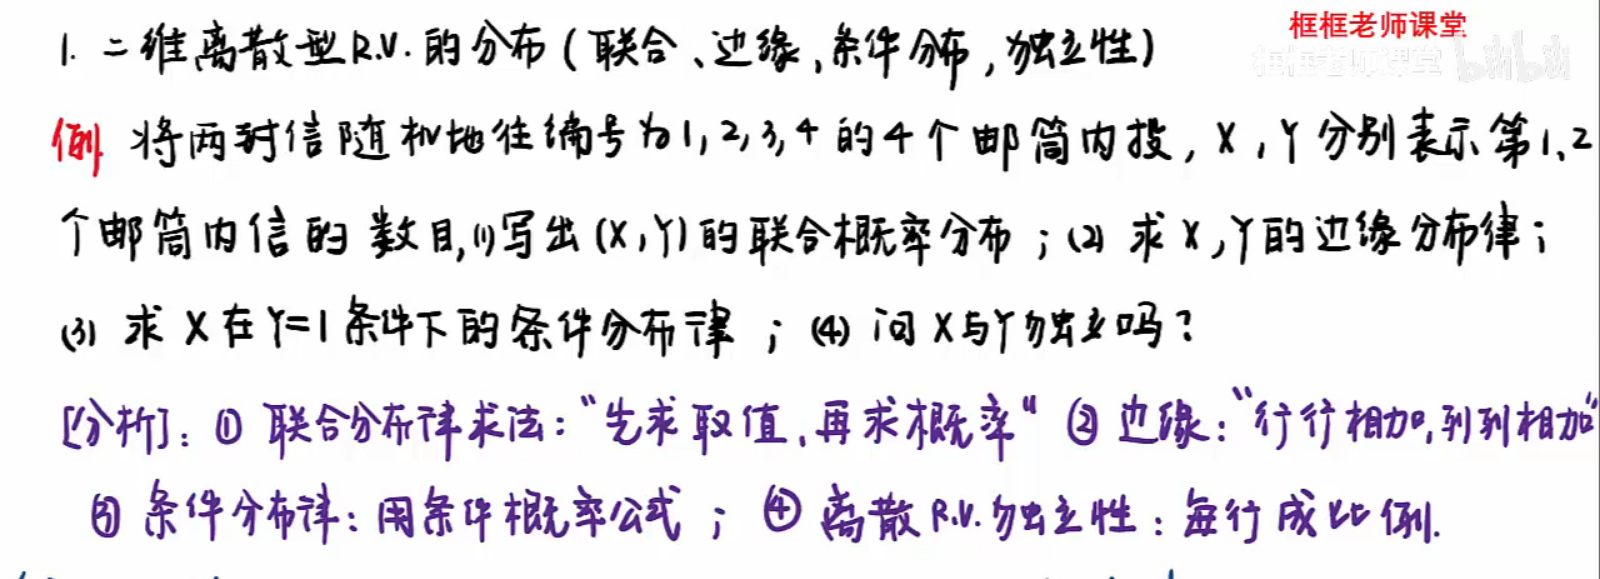 框框老师课堂
1. 二维离散型R.V.的分布(联合、边缘,条件分布,独立性)
框框老师课堂 bilibili
例 将两封信随机地往编号为1,2,3,4的4个邮筒内投, X,Y分别表示第1、2
个邮筒内信的数目,(1)写出(X,Y)的联合概率分布;(2)求X,Y的边缘分布律;
(3)求X在Y=1条件下的条件分布律;(4)问X与Y独立吗?
[分析]:①联合分布律求法:“先求取值,再求概率“ ②边缘:“行行相加,列列相加”
③条件分布律:用条件概率公式;④离散R.V.独立性:每行成比例.